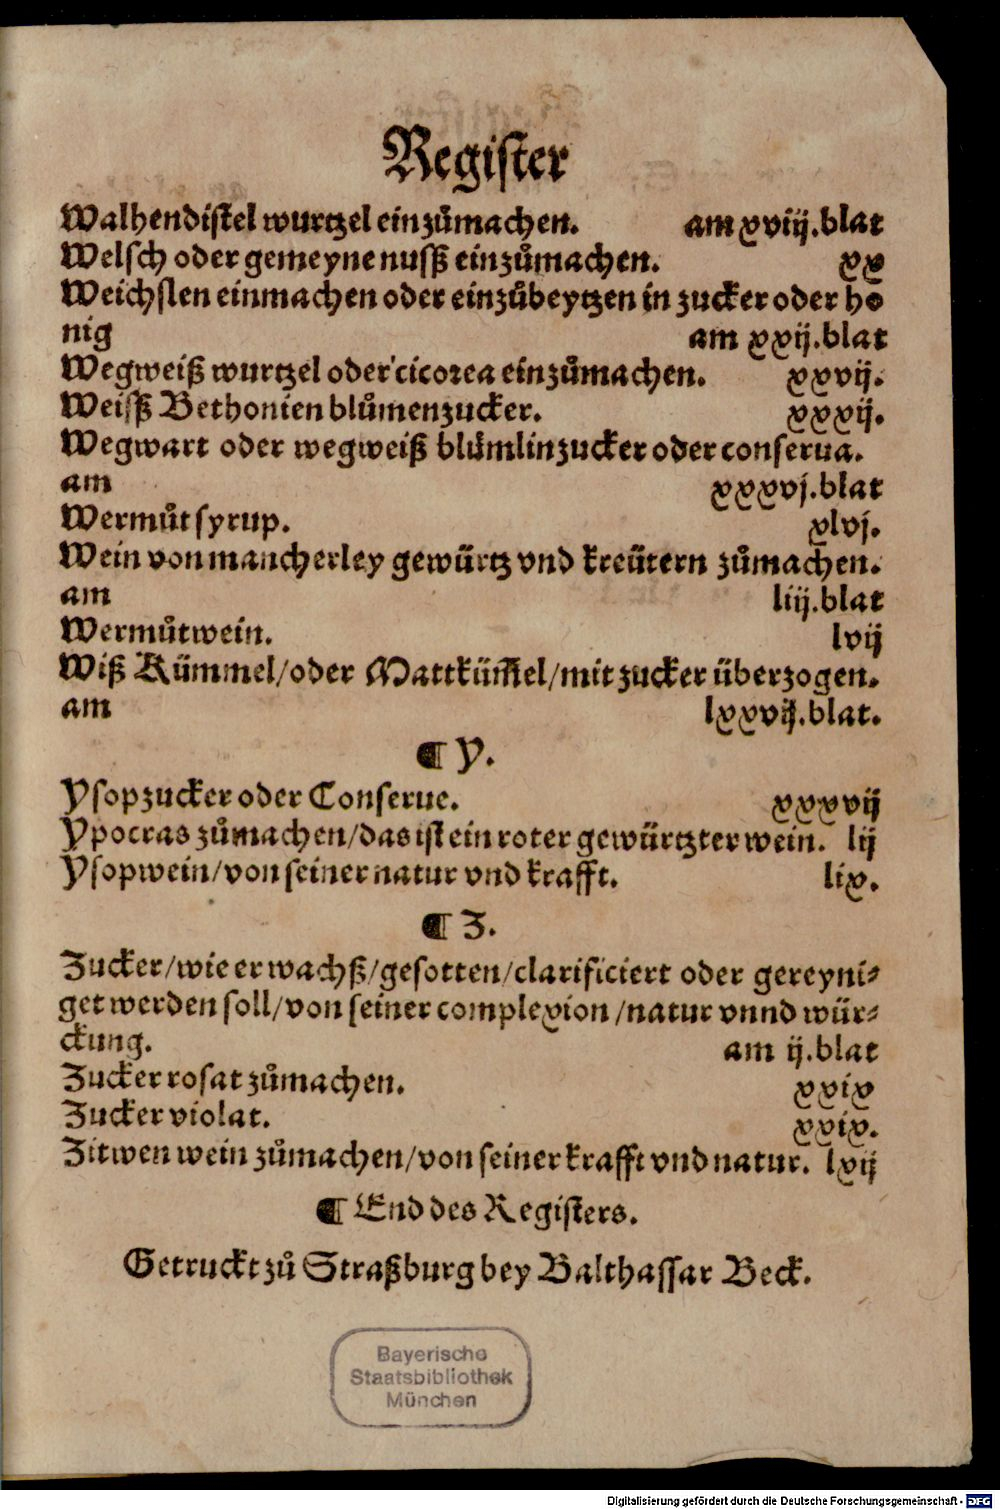 Register
Walhendistel wurtzel einzůmachen. am xviij.blat
Welsch oder gemeyne nusß einzůmachen. xx
Weichslen einmachen oder einzůbeytzen in zucker oder ho
nig am xxij.blat
Wegweiß wurtzel oder cicorea einzůmachen. xxvij.
Weisß Bethonien blůmenzucker. xxxij.
Wegwart oder wegweiß blůmlinzucker oder conserua.
am xxxvj.blat
Wermůt syrup. xlvj.
Wein von mancherley gewürtz vnd kreütern zůmachen.
am liij.blat
Wermůtwein. lvij
Wiß Kümmel/oder Mattküm̃el/mit zucker überzogen.
am lxxvij.blat.
¶ Y.
Ysopzucker oder Conserue. xxxvij
Ypocras zůmachen/das ist ein roter gewürtzter wein. lij
Ysopwein/von seiner natur vnd krafft. lix.
¶ Z.
Zucker/wie er wachß/gesotten/clarificiert oder gereyni⸗
get werden soll/von seiner complexion/natur vnnd wür⸗
ckung. am ij.blat
Zucker rosat zůmachen. xxix
Zucker violat. xxix.
Zitwen wein zůmachen/von seiner krafft vnd natur. lxij
¶ End des Registers.
Getruckt zů Straßburg bey Balthassar Beck.
Bayerische
Staatsbibliothek
München
Digitalisierung gefördert durch die Deutsche Forschungsgemeinschaft - DFG